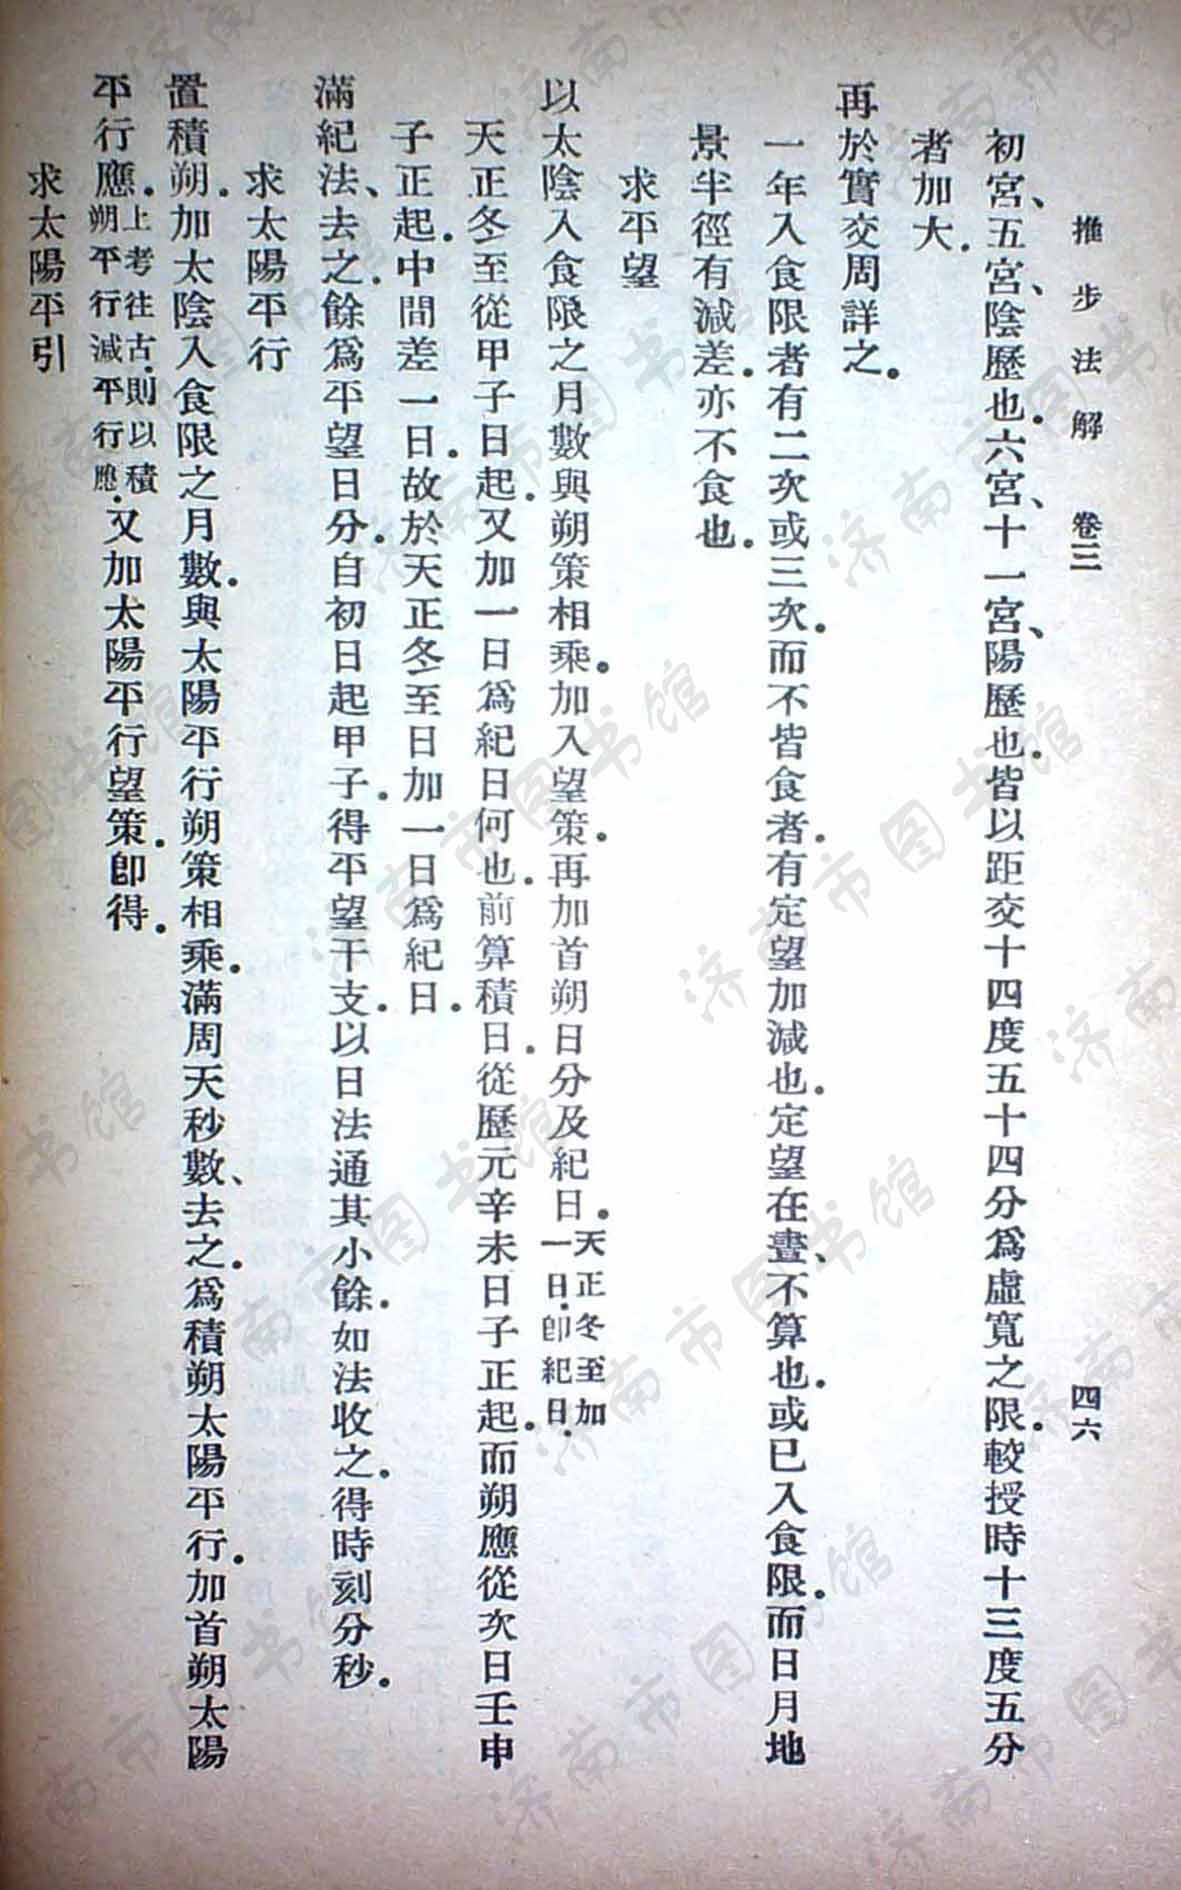 推步法解 卷三 四六
初宮、五宮、陰歷也.六宮、十一宮、陽歷也.皆以距交十四度五十四分爲虛寬之限.較授時十三度五分
者加大.
再於實交周詳之.
一年入食限者有二次或三次.而不皆食者.有定望加減也.定望在晝、不算也.或已入食限.而日月地
景半徑有減差.亦不食也.
求平望
以太陰入食限之月數與朔策相乘.加入望策.再加首朔日分及紀日.天正冬至加
一日.卽紀日.
天正冬至從甲子日起.又加一日爲紀日何也.前算積日.從歷元辛未日子正起.而朔應從次日壬申
子正起.中間差一日.故於天正冬至日加一日爲紀日.
滿紀法、去之.餘爲平望日分.自初日起甲子.得平望干支.以日法通其小餘.如法收之.得時刻分秒.
求太陽平行
置積朔.加太陰入食限之月數.與太陽平行朔策相乘.滿周天秒數、去之.爲積朔太陽平行.加首朔太陽
平行應.上考往古.則以積
朔平行減平行應.又加太陽平行望策.卽得.
求太陽平引
济南市图书馆